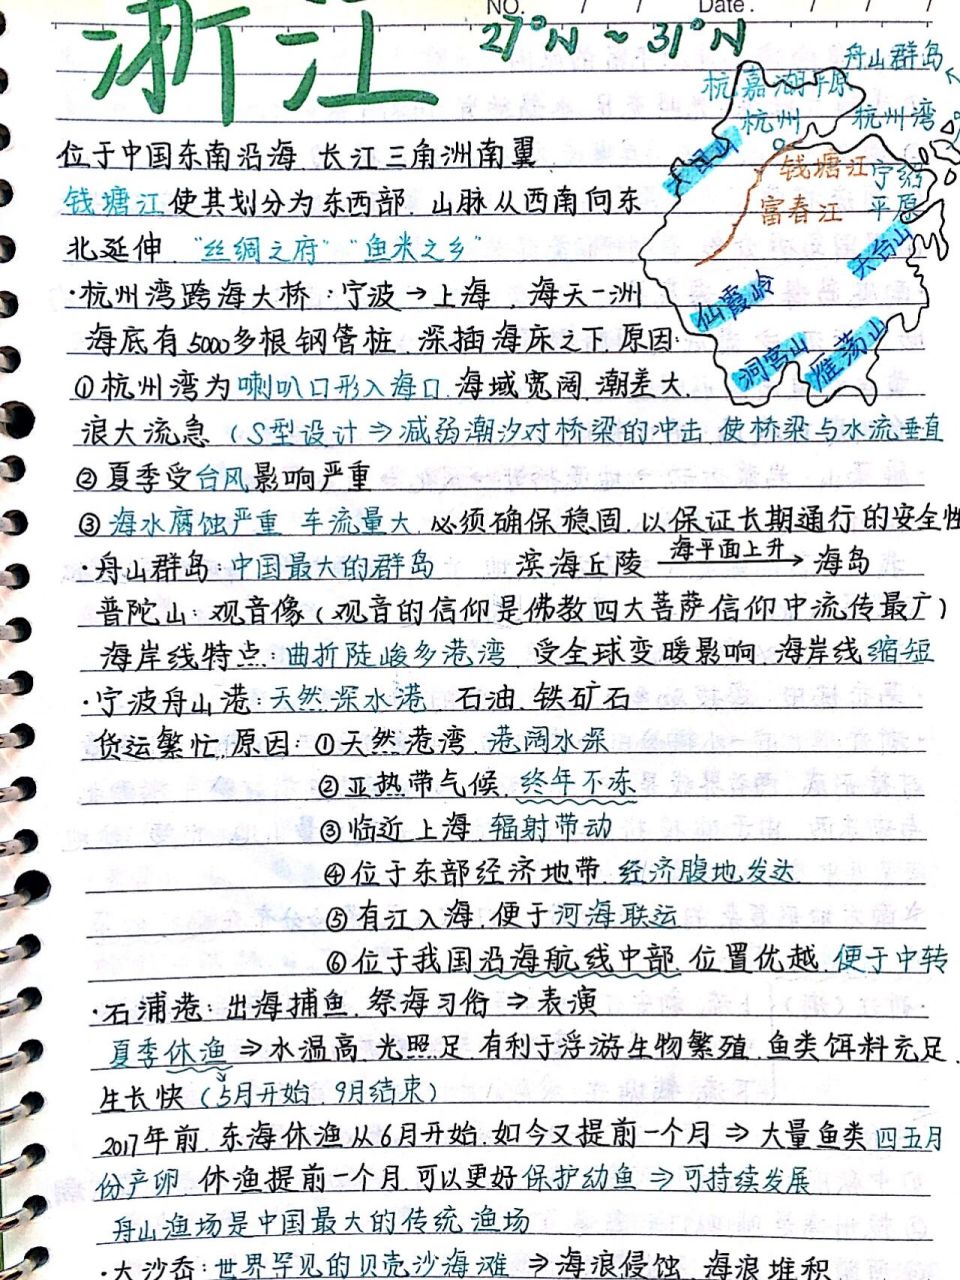 NO.
Date.
浙江
27°N ~ 31°N
舟山群岛
杭嘉湖平原
杭州
杭州湾
钱塘江
宁绍
平原
富春江
天台山
仙霞岭
洞宫山
雁荡山
位于中国东南沿海.长江三角洲南翼
钱塘江使其划分为东西部.山脉从西南向东
北延伸 "丝绸之府" "鱼米之乡"
·杭州湾跨海大桥:宁波→上海.海天一洲
海底有5000多根钢管桩.深插海床之下.原因:
①杭州湾为喇叭口形入海口.海域宽阔.潮差大.
浪大流急(S型设计⇒减弱潮汐对桥梁的冲击.使桥梁与水流垂直
②夏季受台风影响严重
③海水腐蚀严重 车流量大.必须确保稳固.以保证长期通行的安全性
·舟山群岛:中国最大的群岛 滨海丘陵 海平面上升→海岛
普陀山:观音像(观音的信仰是佛教四大菩萨信仰中流传最广)
海岸线特点:曲折陡峻多港湾.受全球变暖影响.海岸线缩短
·宁波舟山港:天然深水港.石油.铁矿石
货运繁忙.原因:①天然港湾.港阔水深
②亚热带气候.终年不冻
③临近上海.辐射带动
④位于东部经济地带.经济腹地发达
⑤有江入海.便于河海联运
⑥位于我国沿海航线中部.位置优越.便于中转
·石浦港:出海捕鱼.祭海习俗⇒表演
夏季休渔⇒水温高.光照足.有利于浮游生物繁殖.鱼类饵料充足.
生长快(5月开始.9月结束)
2017年前.东海休渔从6月开始.如今又提前一个月⇒大量鱼类四五月
份产卵.休渔提前一个月.可以更好保护幼鱼⇒可持续发展
舟山渔场是中国最大的传统渔场
·大沙岙:世界罕见的贝壳沙海滩⇒海浪侵蚀.海浪堆积